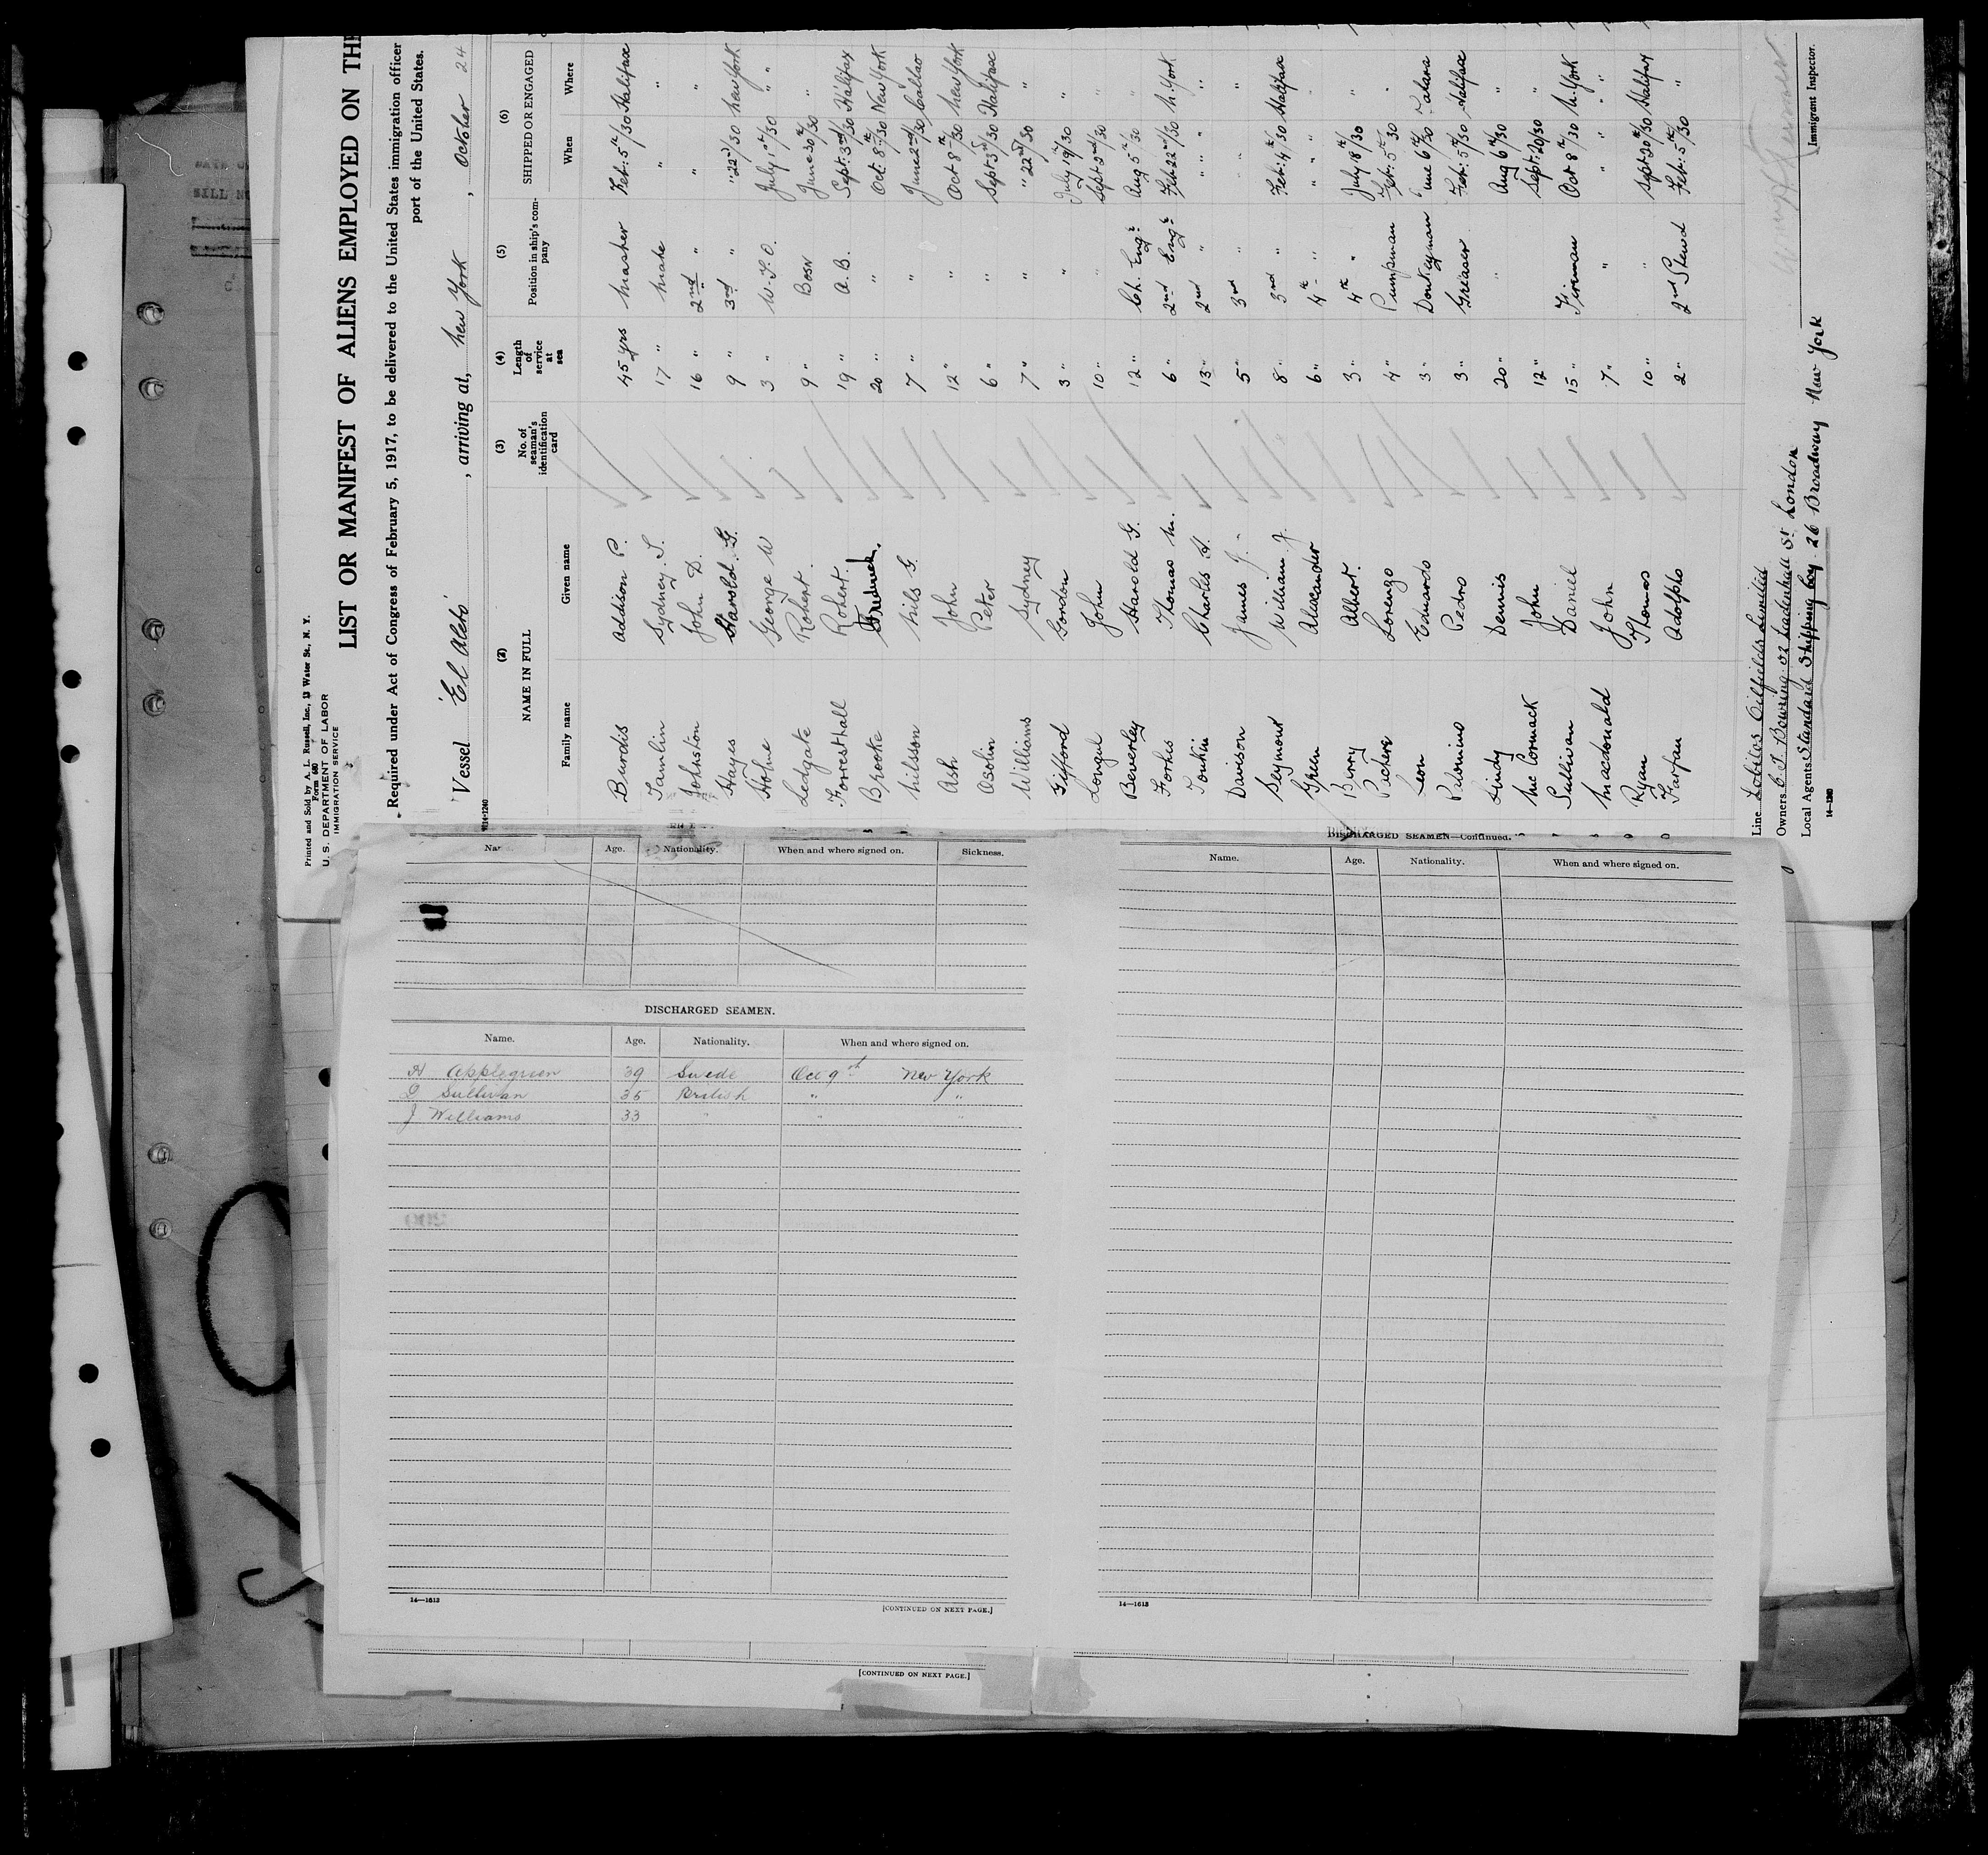 Printed and Sold by A. L. Russell, Inc., 13 Water St., N. Y.
Form 680
U. S. DEPARTMENT OF LABOR
IMMIGRATION SERVICE
LIST OR MANIFEST OF ALIENS EMPLOYED ON THE
Required under Act of Congress of February 5, 1917, to be delivered to the United States immigration officer
port of the United States.
Vessel 'El Alto' , arriving at, New York , October 24
(2) (3) (4) (5) (6)
NAME IN FULL No. of seaman's identification card Length of service at sea Position in ship's company SHIPPED OR ENGAGED
Family name Given name When Where
Burdis Addison P. 45 yrs Master Feb: 5th/30 Halifax
Tamlin Sydney S. 17 " Mate " "
Johnston John D. 16 " 2nd " " "
Hayes Harold G. 9 " 3rd " " 22nd/30 New York
Holme George W 3 " W.T.O. July 1st/30 "
Ledgate Robert. 9 " Bosn June 30th/30 "
Forresthall Robert. 19 " A.B. Sept: 3rd/30 Halifax
Brooke Fredrick. 20 " " Oct 8th/30 New York
Nilsson Nils G. 7 " " June 2nd/30 Callao
Ash John 12 " " Oct 8th/30 New York
Osolin Peter 6 " " Sept 3rd/30 Halifax
Williams Sydney 7 " " " 22nd/30 "
Gifford Gordon 3 " " July 19th/30 "
John 10 " " Sept: 3rd/30 "
Beverley Harold G. 12 " Ch. Engr Aug 5th/30 "
Forbes Thomas M. 6 " 2nd Engr Feb 22nd/30 N. York
Tonkin Charles H. 13 " 2nd " " "
Davison James J. 5 " 3rd " " "
Seymour William J. 8 " 3rd " Feb: 4th/30 Halifax
Green Alexander 6 " 4th " " " "
Berry Albert. 3 " 4th " July 8th/30 "
Lorenzo 4 " Pumpman Feb: 5th 30 "
Leon Eduardo 3 " Donkeyman June 6th/30 Talara
Palomino Pedro 3 " Greaser Feb: 5th/30 Halifax
Lindy Dennis 20 " " Aug 6th/30 "
Mc Cormack John 12 " Sept: 20/30 "
Sullivan Daniel 15 " Fireman Oct 8th/30 N. York
Macdonald John 7 " " " "
Ryan Thomas 10 " " Sept 30th/30 Halifax
Farfan Adolpho 2 " 2nd Stewd Feb: 5th/30 "
Line Lobitos Oilfields Limited
Owners C. T. Bowring. 52 Leadenhall St. London
Local Agents Standard Shipping Coy 26 Broadway New York
Immigrant Inspector.
14—1240
Age. Nationality. When and where signed on. Sickness.
DISCHARGED SEAMEN.
Name. Age. Nationality. When and where signed on.
A Applegreen 39 Swede Oct 9th New York
D Sullivan 35 British " "
J Williams 33 " " "
14—1613
[CONTINUED ON NEXT PAGE.]
DISCHARGED SEAMEN—Continued.
Name. Age. Nationality. When and where signed on.
14—1613
[CONTINUED ON NEXT PAGE.]